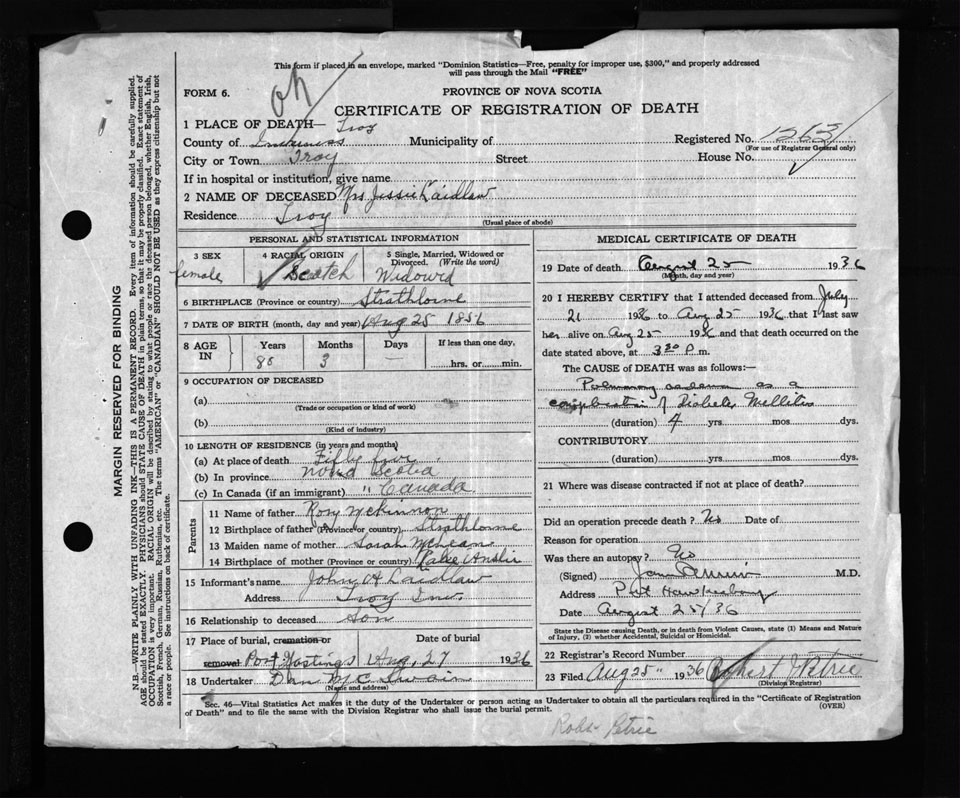 This form if placed in an envelope, marked "Dominion Statistics—Free, penalty for improper use, $300," and properly addressed
will pass through the Mail "FREE"
FORM 6.
PROVINCE OF NOVA SCOTIA
CERTIFICATE OF REGISTRATION OF DEATH
1 PLACE OF DEATH— Troy
County of Inverness Municipality of Registered No. 1263
(For use of Registrar General only)
City or Town Troy Street House No.
If in hospital or institution, give name
2 NAME OF DECEASED Mrs Jessie Laidlaw
Residence Troy
(Usual place of abode)
PERSONAL AND STATISTICAL INFORMATION
3 SEX 4 RACIAL ORIGIN 5 Single, Married, Widowed or Divorced. (Write the word)
female Scotch Widowed
6 BIRTHPLACE (Province or country) Strathlorne
7 DATE OF BIRTH (month, day and year) Aug 25 1856
8 AGE IN Years Months Days If less than one day,
80 3 — hrs. or min.
9 OCCUPATION OF DECEASED
(a)
(Trade or occupation or kind of work)
(b)
(Kind of industry)
10 LENGTH OF RESIDENCE (in years and months)
(a) At place of death Fifty five
(b) In province Nova Scotia
(c) In Canada (if an immigrant) " Canada
Parents
11 Name of father Rory McKinnon
12 Birthplace of father (Province or country) Strathlorne
13 Maiden name of mother Sarah McLean
14 Birthplace of mother (Province or country) Lake Ainslie
15 Informant's name John A Laidlaw
Address Troy Inv.
16 Relationship to deceased Son
17 Place of burial, cremation or Date of burial
removal Port Hastings Aug, 27 1936
18 Undertaker Dan McSwain
(Name and address)
MEDICAL CERTIFICATE OF DEATH
19 Date of death August 25 1936
(Month, day and year)
20 I HEREBY CERTIFY that I attended deceased from July
21 1936 to Aug 25 1936 that I last saw
her alive on Aug 25 1936 and that death occurred on
date stated above, at 3 30 P m.
The CAUSE of DEATH was as follows:—
Pulmonary oedema as a
complication of Diabetes Mellitus
(duration) 4 yrs. mos. dys.
CONTRIBUTORY
(duration) yrs. mos. dys.
21 Where was disease contracted if not at place of death?
Did an operation precede death? No Date of
Reason for operation
Was there an autopsy? No
(Signed) M.D.
Address Port Hawkesbury
Date August 25/36
State the Disease causing Death, or in death from Violent Causes, state (1) Means and Nature
of Injury, (2) whether Accidental, Suicidal or Homicidal.
22 Registrar's Record Number
23 Filed Aug 25 1936 Robert J Petrie
(Division Registrar)
Sec. 46—Vital Statistics Act makes it the duty of the Undertaker or person acting as Undertaker to obtain all the particulars required in the "Certificate of Registration
of Death" and to file the same with the Division Registrar who shall issue the burial permit. (OVER)
Robs- Petrie
MARGIN RESERVED FOR BINDING
N.B.—WRITE PLAINLY WITH UNFADING INK—THIS IS A PERMANENT RECORD. Every item of information should be carefully supplied.
AGE should be stated EXACTLY. PHYSICIANS should STATE CAUSE OF DEATH in plain terms, so that it may be properly classified. Exact statement of
OCCUPATION is very important. RACIAL ORIGIN will be described by stating to what people or race the deceased person belonged, whether English, Irish,
Scottish, French, German, Russian, Ruthenian, etc. The terms "AMERICAN" or "CANADIAN" SHOULD NOT BE USED as they express citizenship but not
a race or people. See instructions on back of certificate.